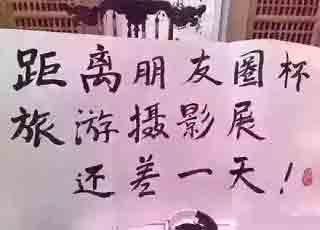 距离朋友圈杯
旅游摄影展
还差一天！